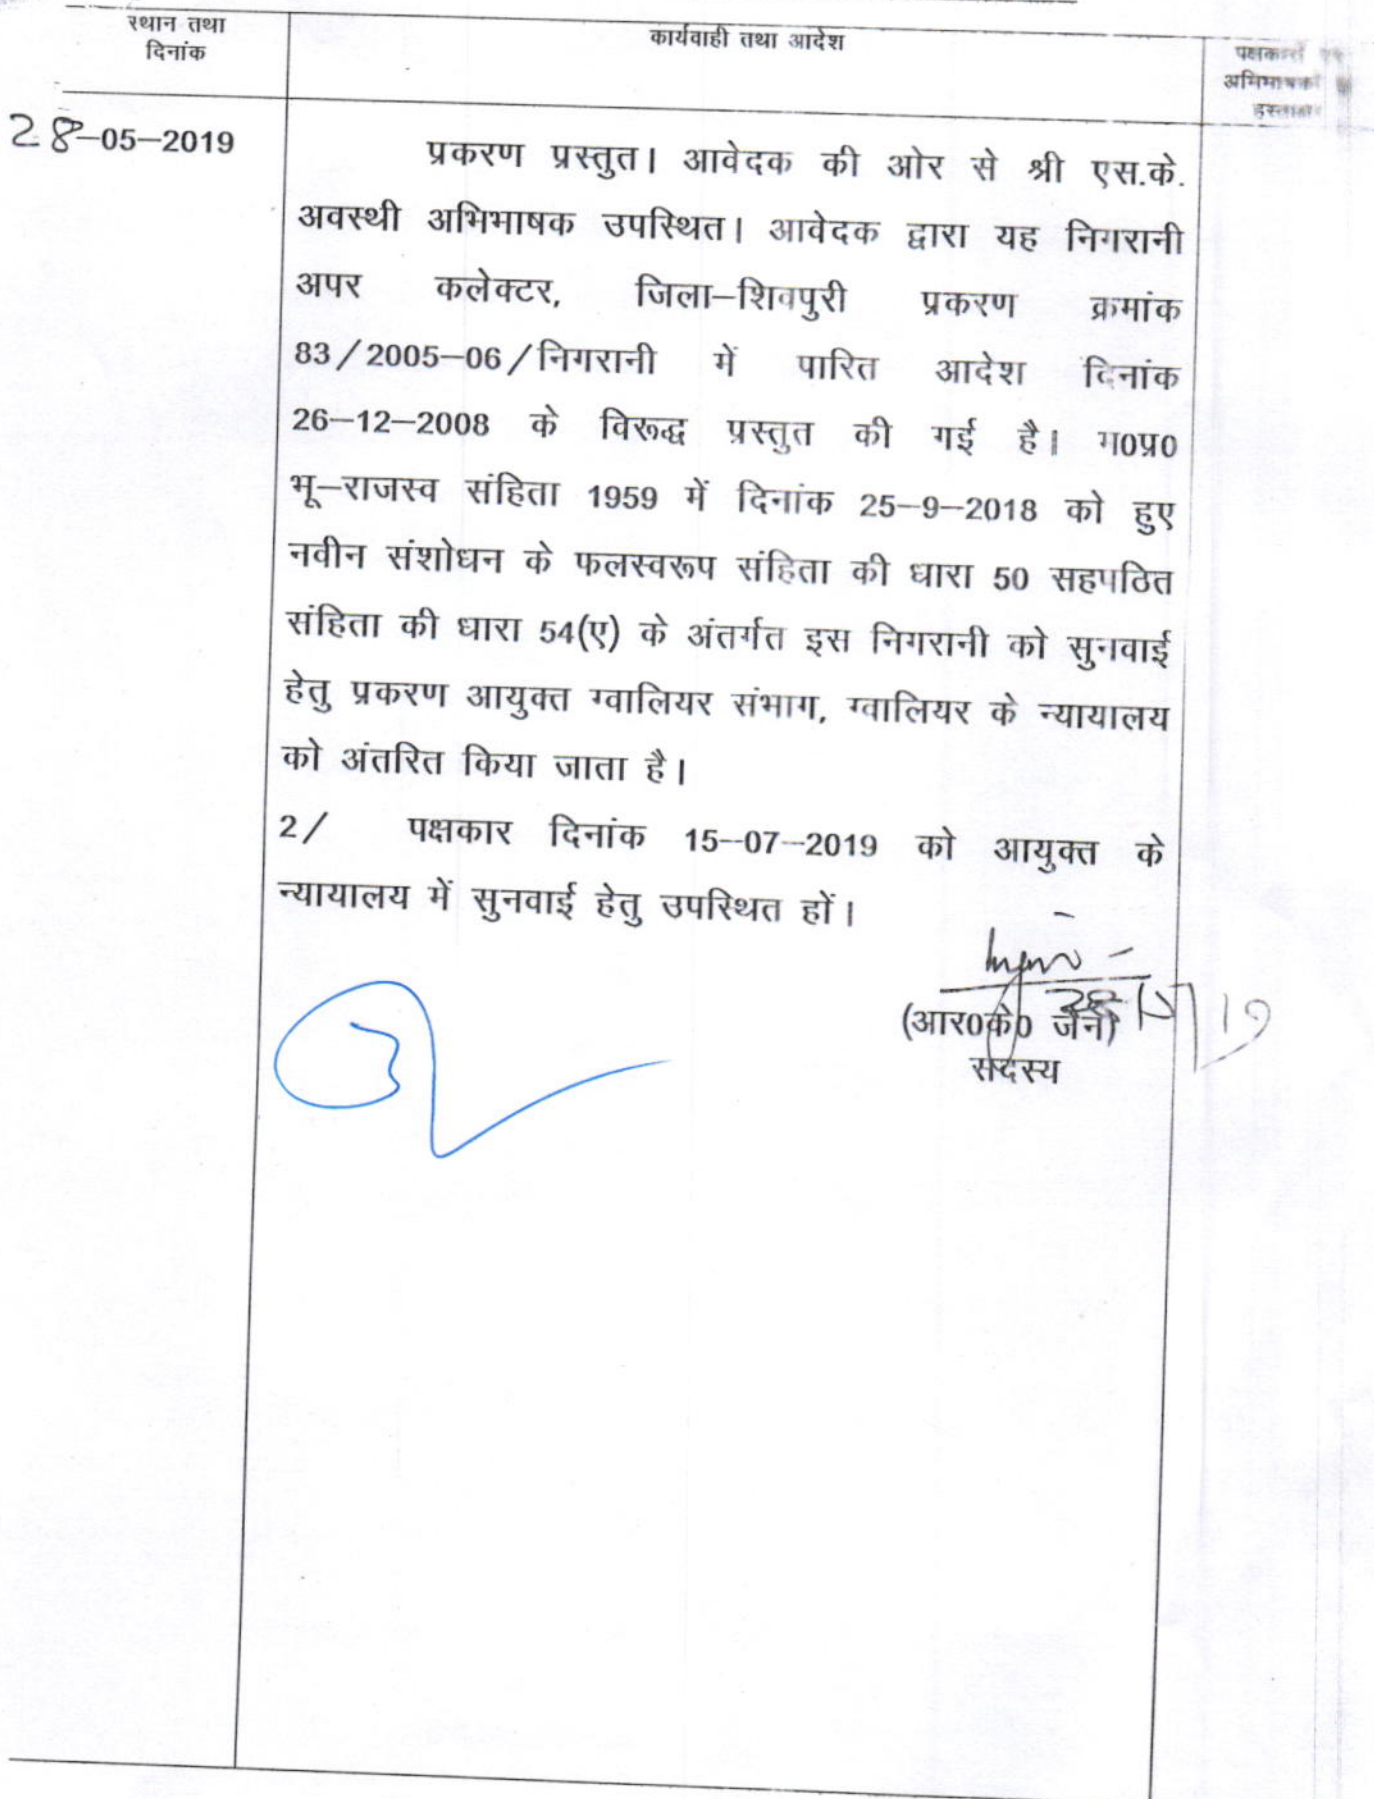 स्थान तथा
दिनांक
कार्यवाही तथा आदेश
पक्षकारों
अभिभाषकों
हस्ताक्षर
28-05-2019
प्रकरण प्रस्तुत। आवेदक की ओर से श्री एस.के.
अवस्थी अभिभाषक उपस्थित। आवेदक द्वारा यह निगरानी
अपर कलेक्टर, जिला-शिवपुरी प्रकरण क्रमांक
83/2005-06/निगरानी में पारित आदेश दिनांक
26-12-2008 के विरूद्ध प्रस्तुत की गई है। म0प्र0
भू-राजस्व संहिता 1959 में दिनांक 25-9-2018 को हुए
नवीन संशोधन के फलस्वरूप संहिता की धारा 50 सहपठित
संहिता की धारा 54(ए) के अंतर्गत इस निगरानी को सुनवाई
हेतु प्रकरण आयुक्त ग्वालियर संभाग, ग्वालियर के न्यायालय
को अंतरित किया जाता है।
2/ पक्षकार दिनांक 15-07-2019 को आयुक्त के
न्यायालय में सुनवाई हेतु उपस्थित हों।
28/5/19
(आर0के0 जैन)
सदस्य